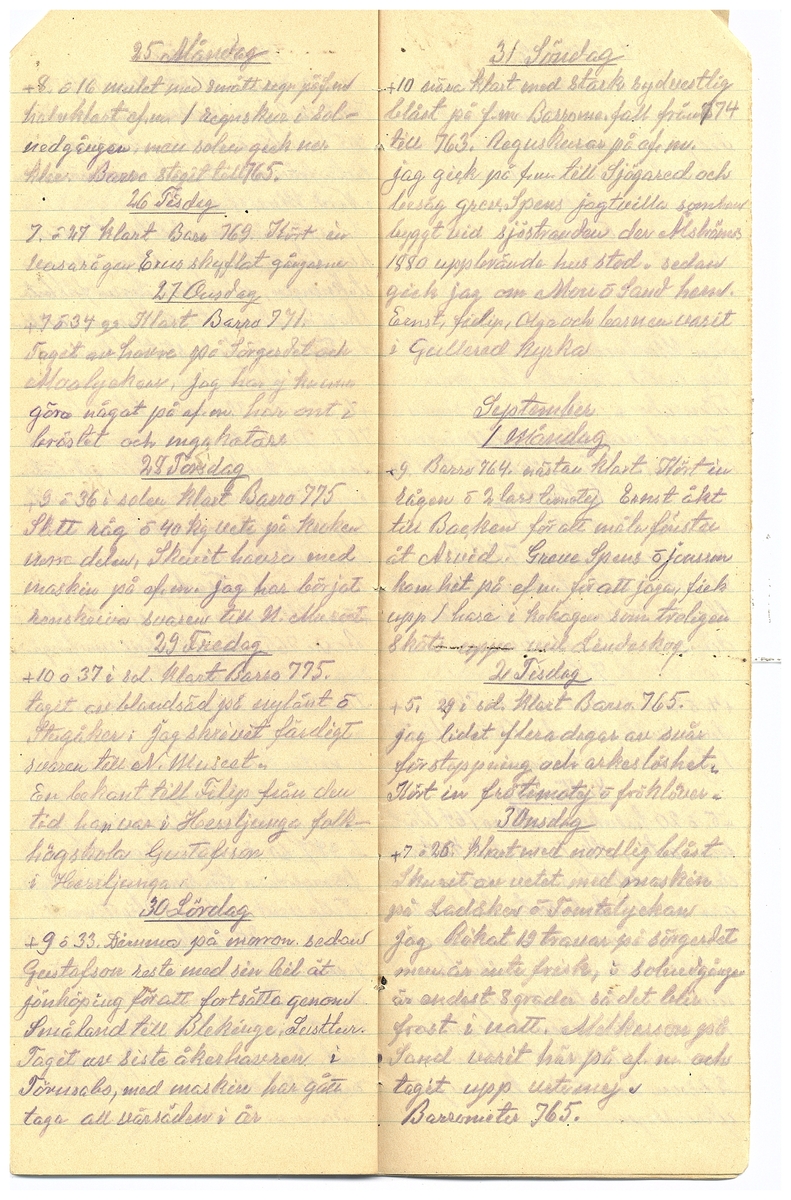 25 Måndag
+8 ö 16 mulet med smått regn på f.m
halvklart ef.m. 1 regnskur i sol-
nedgången men solen gick ner
klar. Barro stegit till 765.
26 Tisdag
7. ö 27 klart Baro 769. Kört in
rågen Ernst skyflat gångarne
27 Onsdag
+7 ö 34 gr Klart Barro 771.
Taget av havre på Sörgerdet och
Moalyckan, jag har ej kunna
göra något på ef.m. har ont i
bröstet och
28 Torsdag
+9 ö 36 i solen klart Barro 775
Sått råg ö 40 kg vete på kroken
norra delen, Skurit havra med
maskin på ef.m. jag har börjat
renskriva svaren till N. Museet
29 Fredag
+10 ö 37 i sol. Klart Barro 775.
taget av blandsäd på nylänt ö
Stegåker: Jag skrivit färdigt
svaren till N. Museet.
En bekant till Filip från den
tid han var i Herrljunga folk-
högskola Gustafsson
i Herrljunga.
30 Lördag
+9 ö 33. Dimma på morron. sedan
Gustafson reste med sin bil åt
jönköping för att fortsätta genom
Småland till Blekinge, Lusttur.
Taget av siste åkerhavren i
med maskin har gått
taga all vårsäden i år
31 Söndag
+10 nära klart med stark sydvestlig
blåst på f.m Barrome. fall från 774
till 763. Regnskurar på ef. m.
jag gick på f.m till Sjögared och
besåg greve Spens jagtvilla som han
byggt vid sjöstranden der Alströmes
1880 uppbrände hus stod. sedan
gick jag om Mon ö Sand hem.
Ernst, filip, Olga och barnen varit
i Gullered Kyrka
September
1 Måndag
+9. Barro 764. nästan klart Kört in
rågen ö 2 lass timotej Ernst åkt
till Backen för att måla fönster
åt Arvid. Greve Spens ö jonsson
kom hit på ef.m. för att jaga, fick
upp 1 hare i hohagen som troligen
Sköts vid Lindeskog.
2 Tisdag
+5. 29 i sol. Klart Barro. 765.
jag lidet flera dagar av svår
förstoppning och orkeslöshet.
Kört in frötimotej ö fröklöver.
3 Onsdag
+7 ö 26. klart med nordlig blåst
Skurit av vetet med maskin
på Ladskov ö Tomtalyckan
jag Rökat 19 travar på sörgerdet
men är inte frisk, i solnedgången
är endast 8 grader så det blir
frost i natt. Melkerson på
Sand varit här på ef. m. och
taget upp
Barrometer 765.